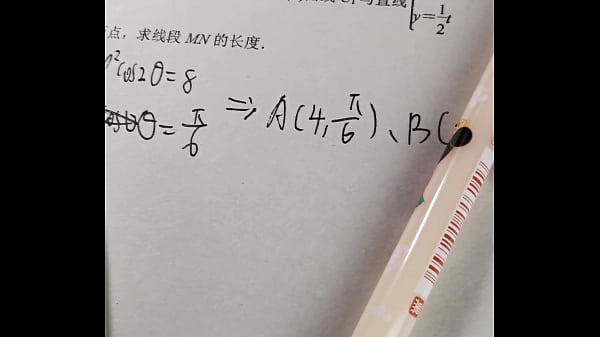 y=1/2 t
点，求线段 MN 的长度.
²cos2θ=8
θ=π/6 ⇒ A(4,π/6)、B(